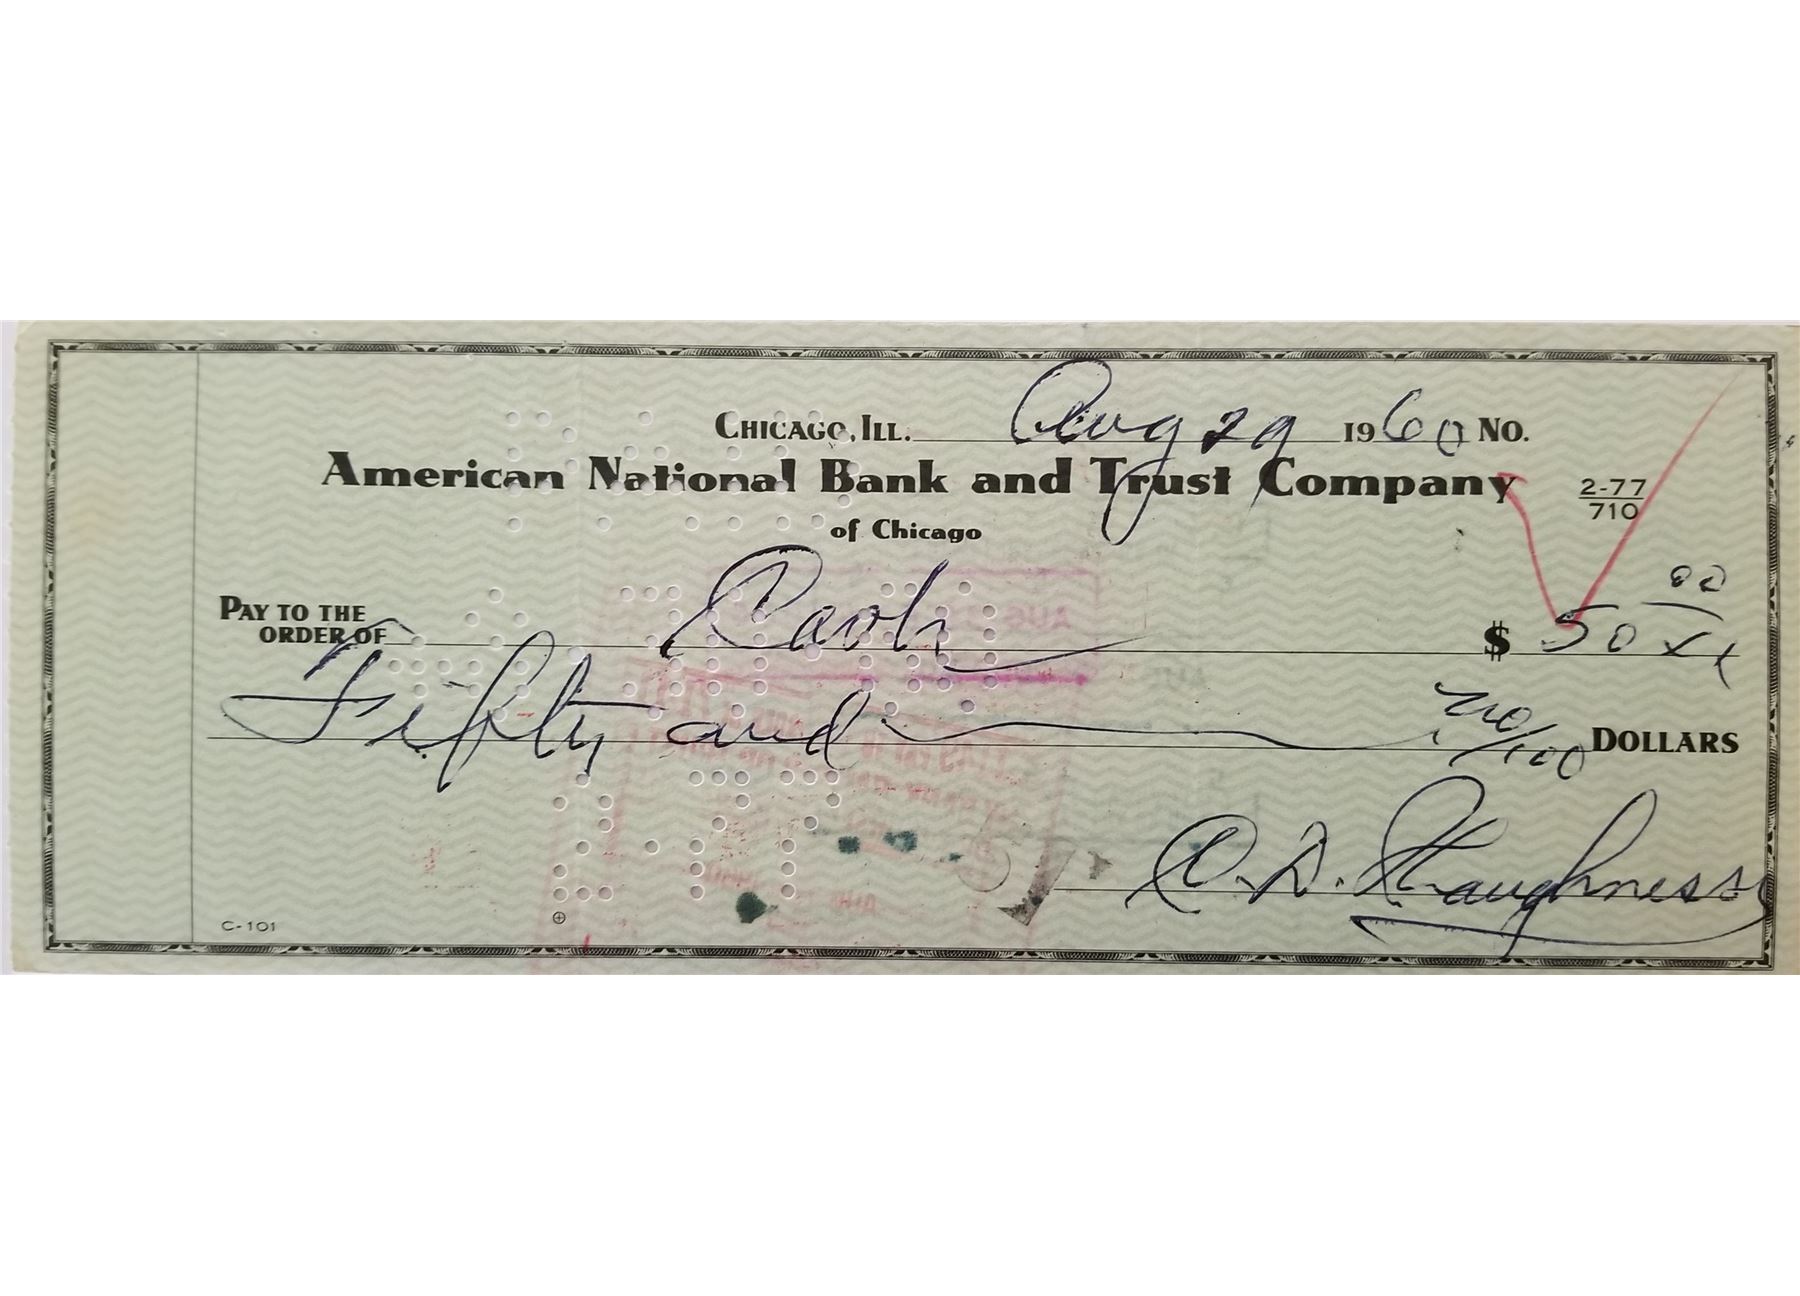 CHICAGO, ILL. Aug 29 1960 NO.
American National Bank and Trust Company 2-77/710
of Chicago
PAY TO THE ORDER OF Cash $ 50 00/xx
Fifty and no/100 DOLLARS
C. D. Shaughnessy
C-101